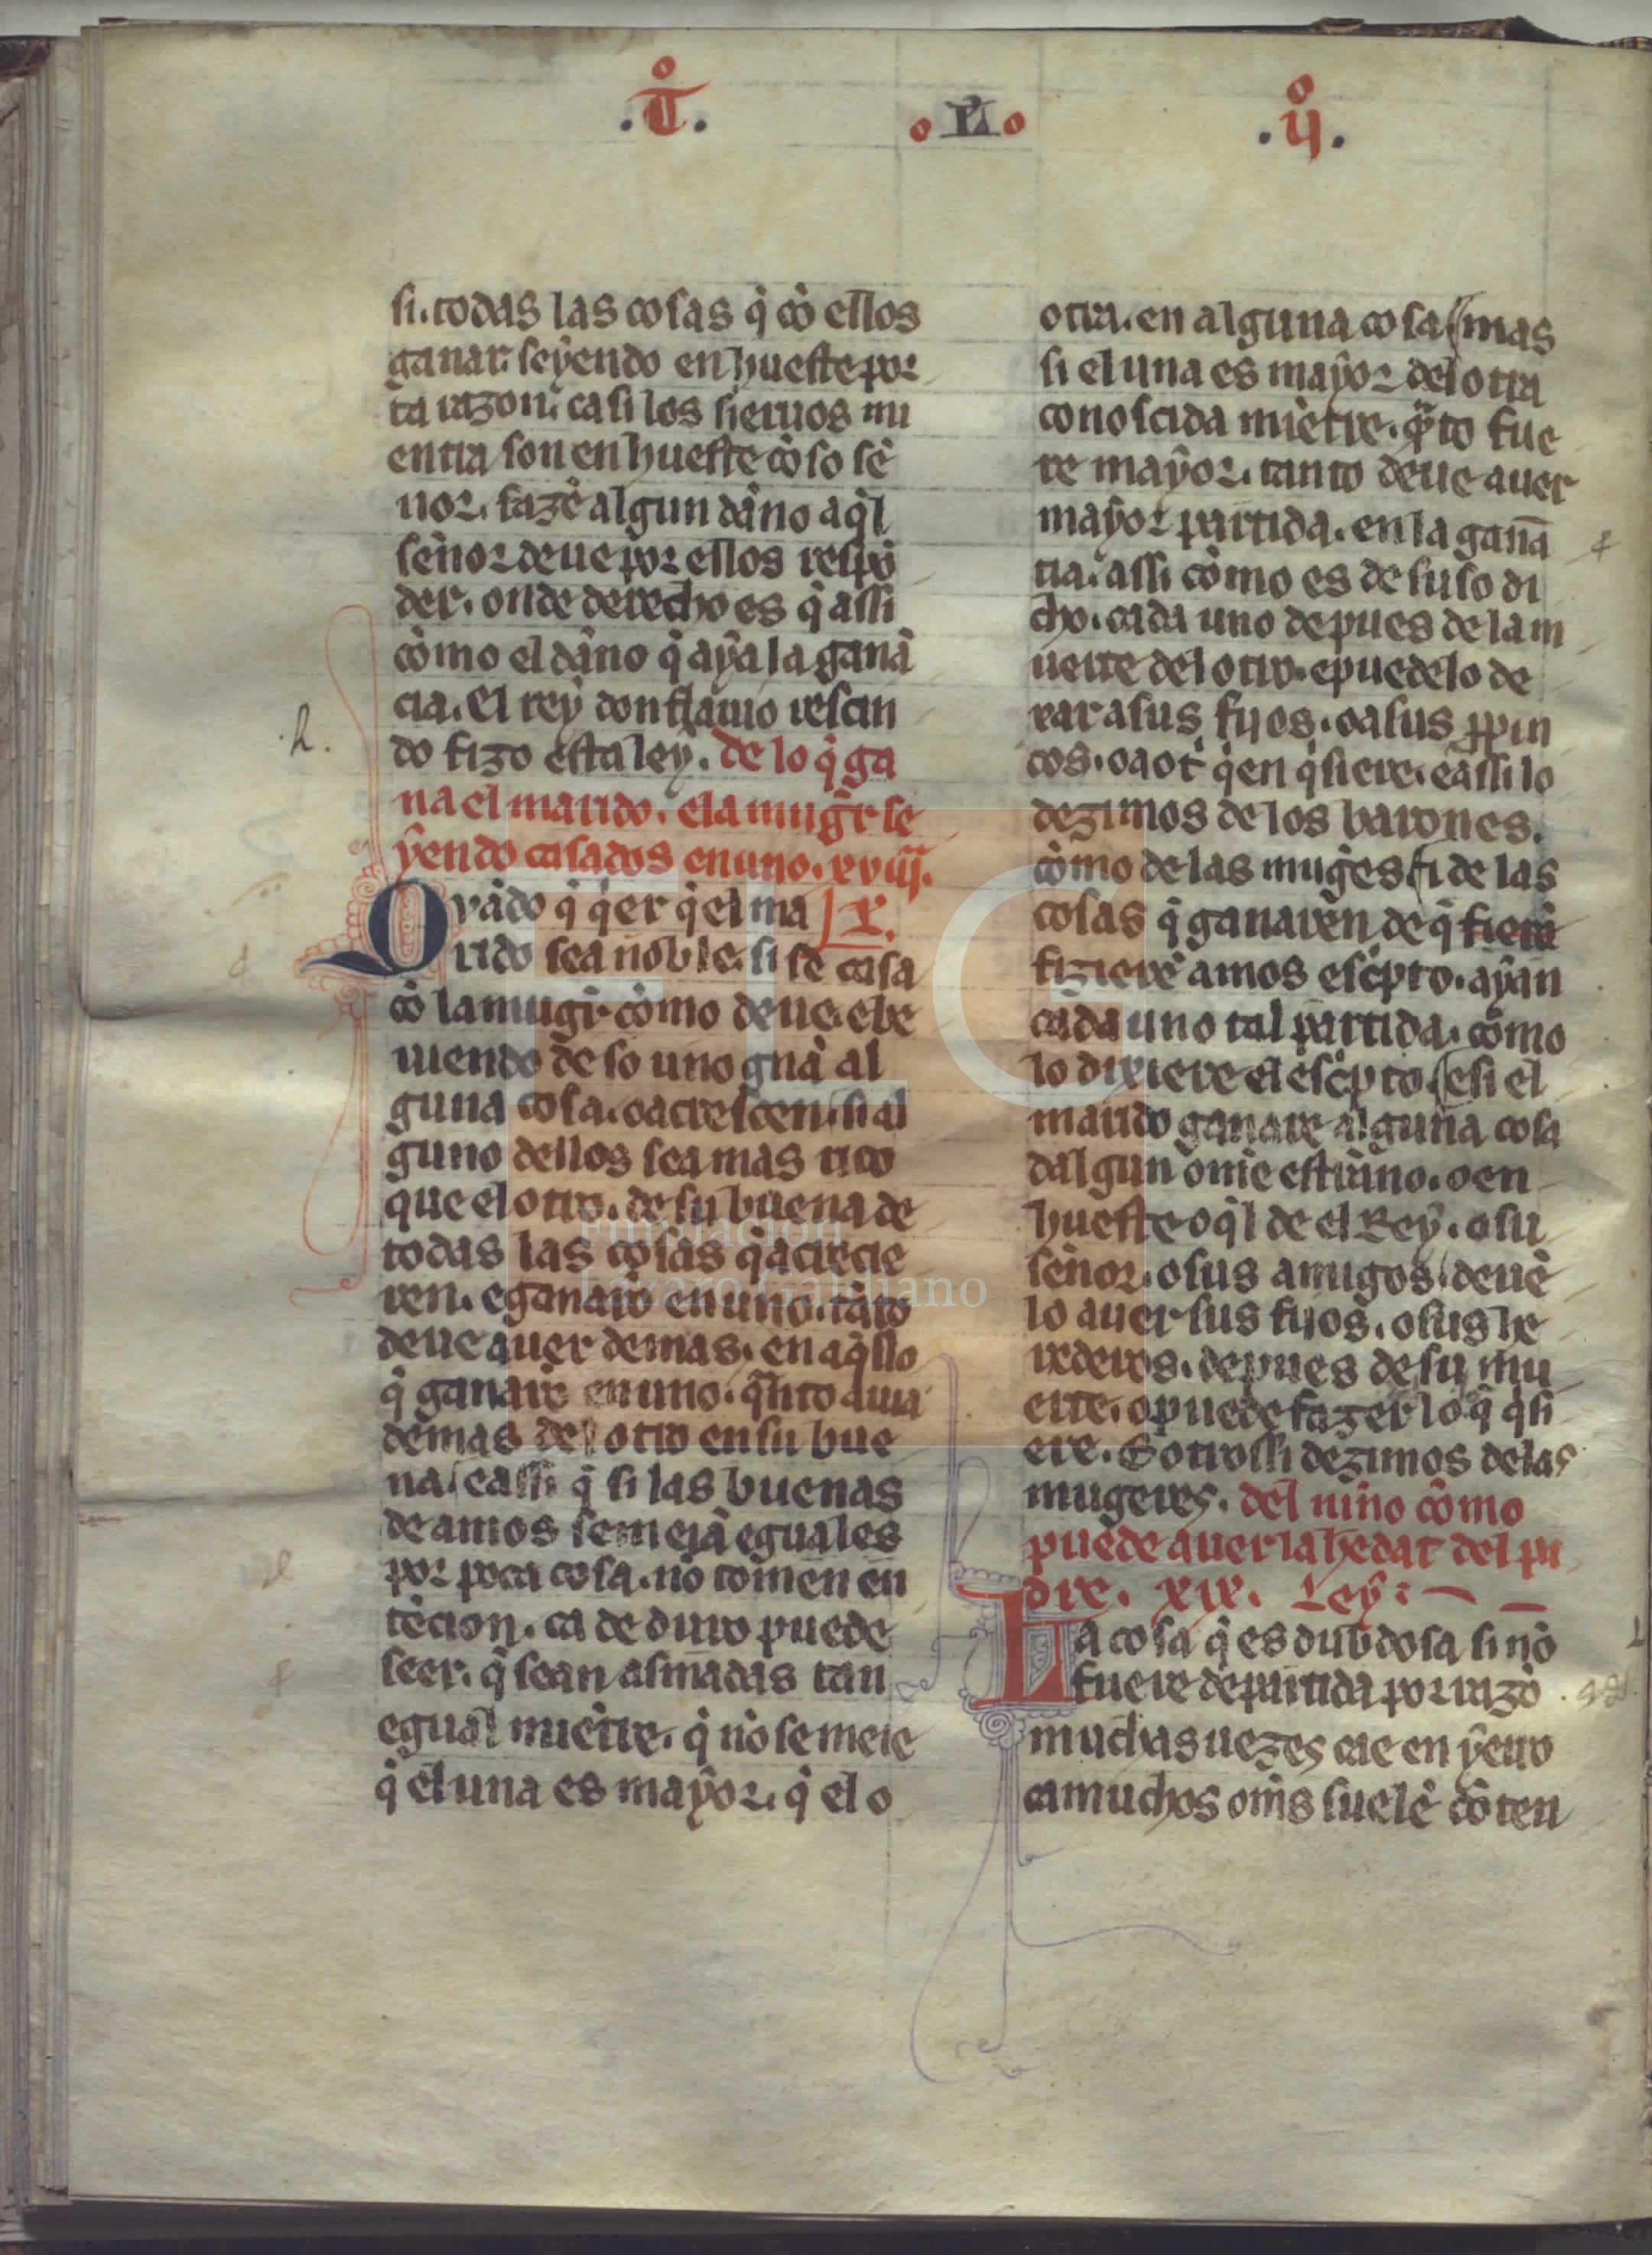 .t̊. .L. .ij̊.
si. todas las cosas q̇ cȯ ellos
ganar. seyendo en hueste por
ta razon. ca si los sieruos mi
entra son en hueste cȯ so sē
nor. fazē algun dāno aql̇
sēnor deue por ellos respō
der. onde derecho es q̇ assi
cōmo el dāno q̇ aya la ganā
cia. El rey don flauio rescin
do fizo esta ley. de lo q̇ ga
na el marido. e la mugr̄ se
yendo casados en uno. xviij.
Qvādo q̇ q̇er q̇ el ma L̄.
rido sea noble. si se casa
cȯ la mugr̄ cōmo deue. e be
uiendo de so uno gnā al
guna cosa. o acrescen. si al
guno dellos sea mas rico
que el otro. de su buena de
todas las cosas q̇ acrecie
ren. e ganarō en uno. tāto
deue auer demas. en aq̇llo
q̇ ganarē en uno. qn̄to auia
demas del otro en su bue
na. e assi q̇ si las buenas
de amos semeiā eguales
por poca cosa. nō tomen en
tēcion. ca de duro puede
seer. q̇ sean asmadas tan
egual miētre. q̇ nō semeie
q̇ el una es mayor. q̇ el o
otra. en alguna cosa. mas
si el una es mayor del otra
conoscida miētre. qn̄to fue
re mayor. tanto deue auer
mayor partida. en la ganā
cia. assi cōmo es de suso di
cho. cada uno depues de la m
uerte del otro. e puedelo de
xar a sus fijos. o a sus ꝓpin
cos. o a ot̊ q̇en q̇siere. e assi lo
dezimos de los barones.
cōmo de las mugēs. E de las
cosas q̇ ganarēn de q̇ fierē
fizierē amos esc̄pto. ayan
cada uno tal partida. cōmo
lo dixiere el esc̄pto. e si el
marido ganare alguna cosa
dalgun ōme estrāno. o en
hueste o q̇l de el Rey. o su
sēnor. o sus amigos. deuē
lo auer sus fijos. o sus he
rederos. depues de su mu
erte. o puede fazer lo q̇ q̇si
ere. E otrossi dezimos de las
mugeres. del niño cōmo
puede auer la hedat del pa
dre. xix. Ley:
La cosa q̇ es dubdosa si nō
fuere departida por razō
muchas uezes cae en yerro
ca muchos om̄s suelē cōten
.h.
FLG
Fundación
Lázaro Galdiano